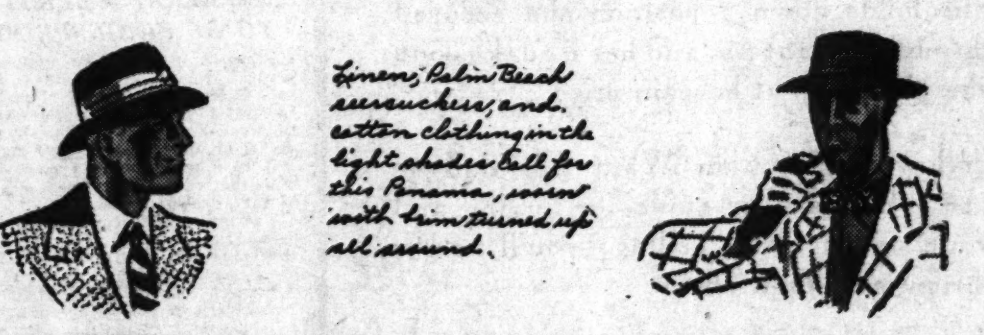 Linen, Palm Beach
seersuckers, and.
cotton clothing in the
light shades call for
this Panama, worn
with brim turned up
all around.